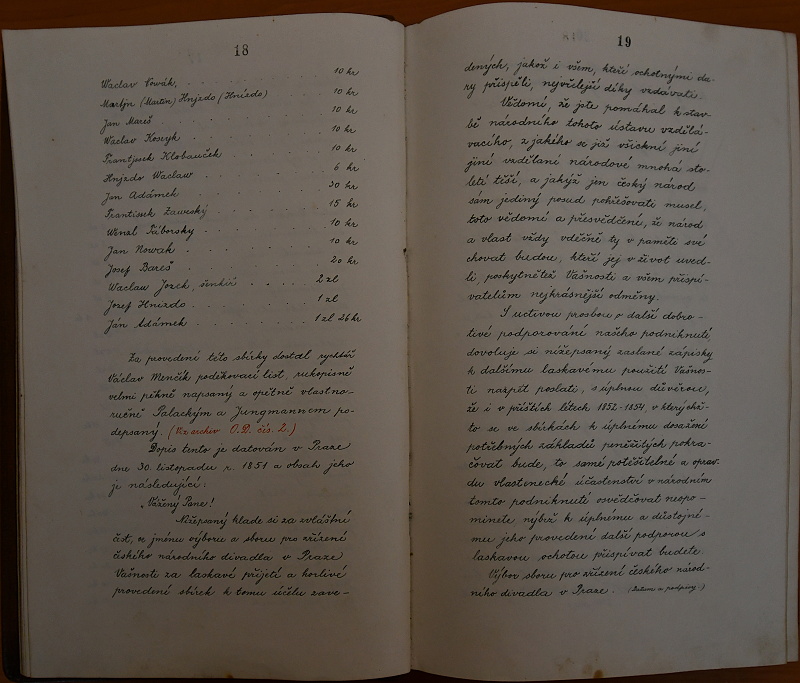 18
Waclav Nowák, . . . . . . . . 10 kr
Martjn (Martin) Hnjzdo (Hnízdo) 10 kr
Jan Mareš . . . . . . . . 10 kr
Waclav Kosryk . . . . . . . . 10 kr
Frantjsek Klobauček . . . . . . 10 kr
Hnjzdo Waclaw . . . . . . . . 6 kr
Jan Adámek . . . . . . . . 30 kr
Frantissek Zaweský . . . . . . 15 kr
Wenzl Táborsky . . . . . . . . 10 kr
Jan Nowak . . . . . . . . 10 kr
Josef Bareš . . . . . . . . 20 kr
Waclaw Jozek, šenkýř . . . . . 2 zl
Jozef Hnízdo . . . . . . . . 1 zl
Ján Adámek . . . . . . . . 1 zl 26 kr
Za provedení této sbírky dostal rychtář
Václav Menčík poděkovací list, rukopisně
velmi pěkně napsaný a opětně vlastno-
ručně Palackým a Jungmannem po-
depsaný. (Viz archiv O.D. čís. 2.)
Dopis tento je datován v Praze
dne 30. listopadu r. 1851 a obsah jeho
je následující:
„Vážený Pane!
Nížepsaný klade si za zvláštní
část, ve jménu výboru a sboru pro zřízení
českého národního divadla v Praze
Vašnosti za laskavé přijetí a horlivé
provedení sbírek k tomu účelu zave-
19
dených, jakož i všem, kteří ochotnými da-
ry přispěli, nejvřelejší díky vzdávati.
Vědomí, že jste pomáhal k stav-
bě národního tohoto ústavu vzdělá-
vacího, z jakého se již všickni jiní
jiní vzdělaní národové mnohá sto-
letí těší, a jakýž jen český národ
sám jediný posud pohřešovati musel,
toto vědomí a přesvědčení, že národ
a vlast vždy vděčně ty v paměte své
chovat budou, kteří jej v život uved-
li, poskytnětež Vašnosti a všem přispí-
vatelům nejkrásnější odměny.
S uctivou prosbou o další dobro-
tivé podporování našho podniknutí
dovoluje si nížepsaný zaslané zápisky
k dalšímu laskavému použití Vašnos-
ti nazpět poslati, s úplnou důvěrou,
že i v příštích létech 1852-1854, v kterýchž-
to se ve sbírkách k úplnému dosažení
potřebných základů peněžitých pokra-
čovat bude, to samé potěšitelné a oprav-
du vlastenecké účastenství v národním
tomto podniknutí osvědčovat neopo-
minete nýbrž k úplnému a důstojné-
mu jeho provedení další podporou s
laskavou ochotou přispívat budete.
Výbor sboru pro zřízení českého národ-
ního divadla v Praze. (Datum a podpisy.)